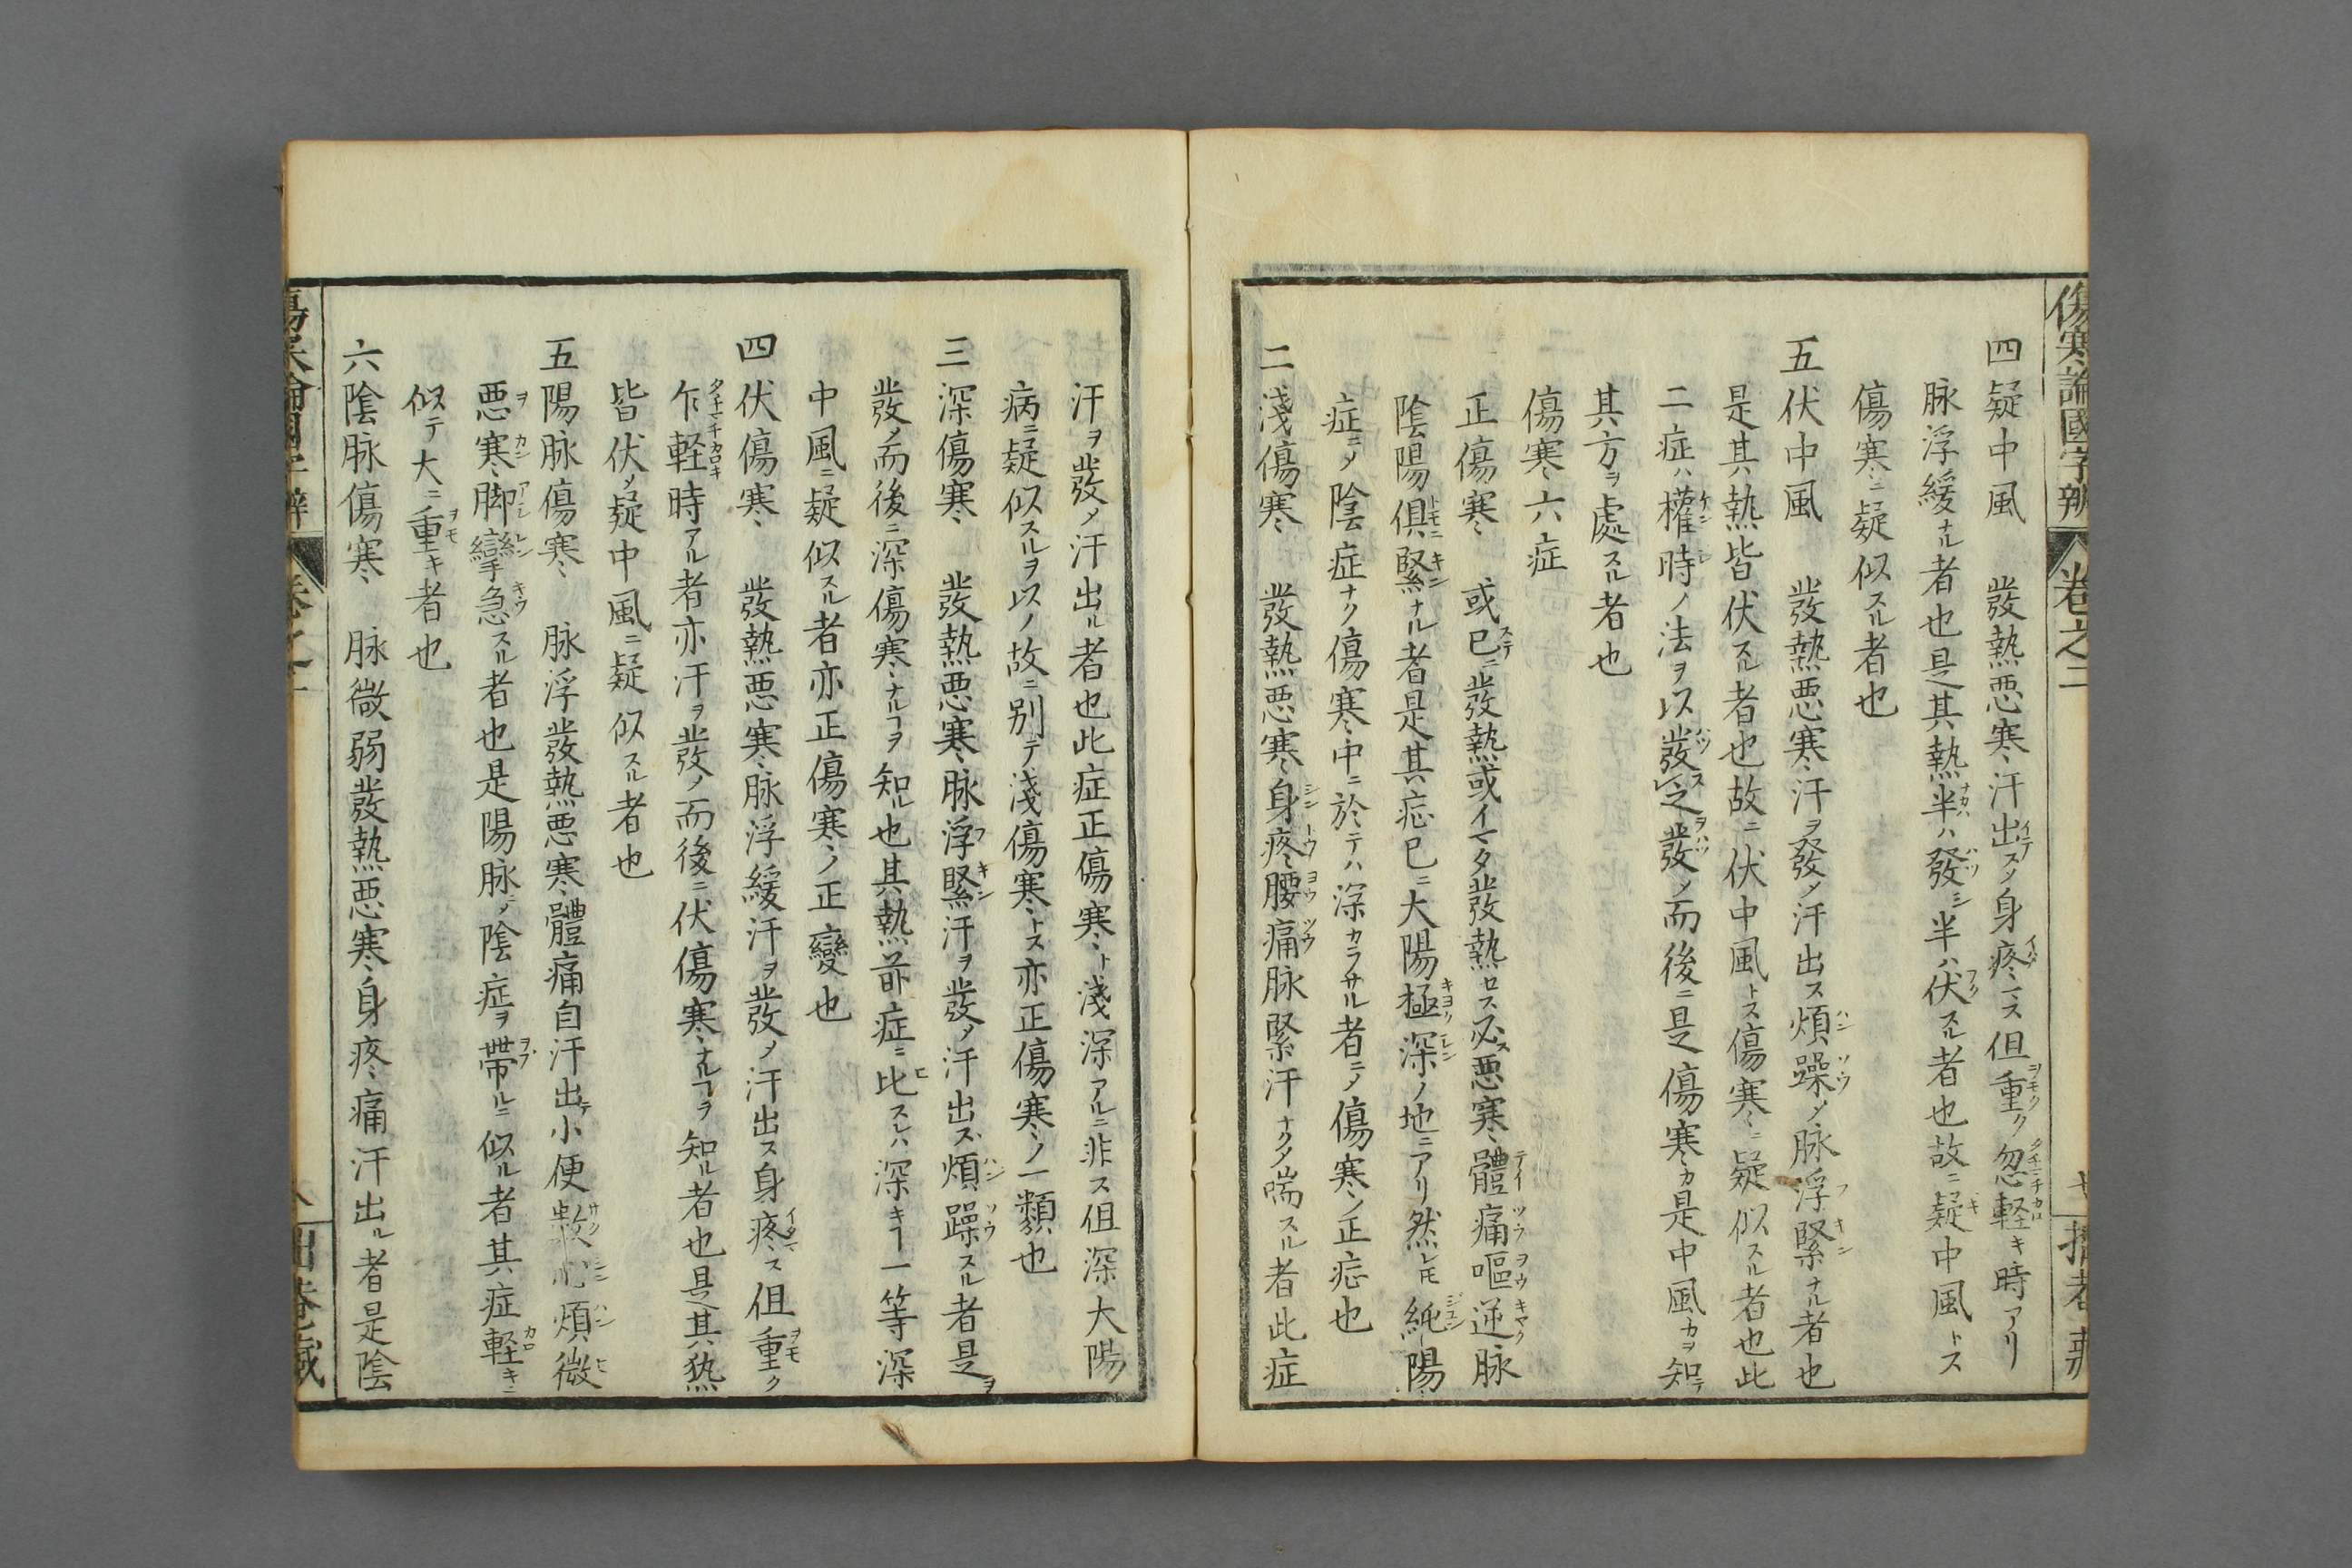 傷寒論國字辨 卷之二
四 疑中風 發熱悪寒汗出スノ身疼ス但重ク忽軽キ時アリ
脉浮緩ナル者也是其熱半ハ發シ半ハ伏スル者也故ニ疑中風トス
傷寒ニ疑似スル者也
五 伏中風 發熱悪寒汗ヲ發ノ汗出ス煩躁ノ脉浮緊ナル者也
是其熱皆伏スル者也故ニ伏中風トス傷寒ニ疑似スル者也此
二症ハ權時ノ法ヲ以發之發ノ而後ニ是傷寒カ是中風カヲ知テ
其方ヲ處スル者也
傷寒六症
正傷寒 或已ニ發熱或イマタ發熱セス必ス悪寒體痛嘔逆脉
陰陽俱緊ナル者是其症已ニ大陽極深ノ地ニアリ然レモ純陽
症ニノ陰症ナク傷寒中ニ於テハ深カラサル者ニノ傷寒ノ正症也
二 淺傷寒 發熱悪寒身疼腰痛脉緊汗ナクノ喘スル者此症
汗ヲ發ノ汗出ル者也此症正傷寒ト淺深アルニ非ス但深大陽
病ニ疑似スルヲ以ノ故ニ別テ淺傷寒トス亦正傷寒ノ一類也
三 深傷寒 發熱悪寒脉浮緊汗ヲ發ノ汗出ス煩躁スル者是ヲ
發ノ而後ニ深傷寒ナルヿヲ知ル也其熱前症ニ比スレハ深キヿ一等深
中風ニ疑似スル者亦正傷寒ノ正變也
四 伏傷寒 發熱悪寒脉浮緩汗ヲ發ノ汗出ス身疼ス但重ク
乍軽時アル者亦汗ヲ發ノ而後ニ伏傷寒ナルヿヲ知ル者也是其熱
皆伏ノ疑中風ニ疑似スル者也
五 陽脉傷寒 脉浮發熱悪寒體痛自汗出テ小便數心煩微
悪寒脚攣急スル者也是陽脉ニノ陰症ヲ帶ルニ似ル者其症軽キニ
似テ大ニ重キ者也
六 陰脉傷寒 脉微弱發熱悪寒身疼痛汗出ル者是陰